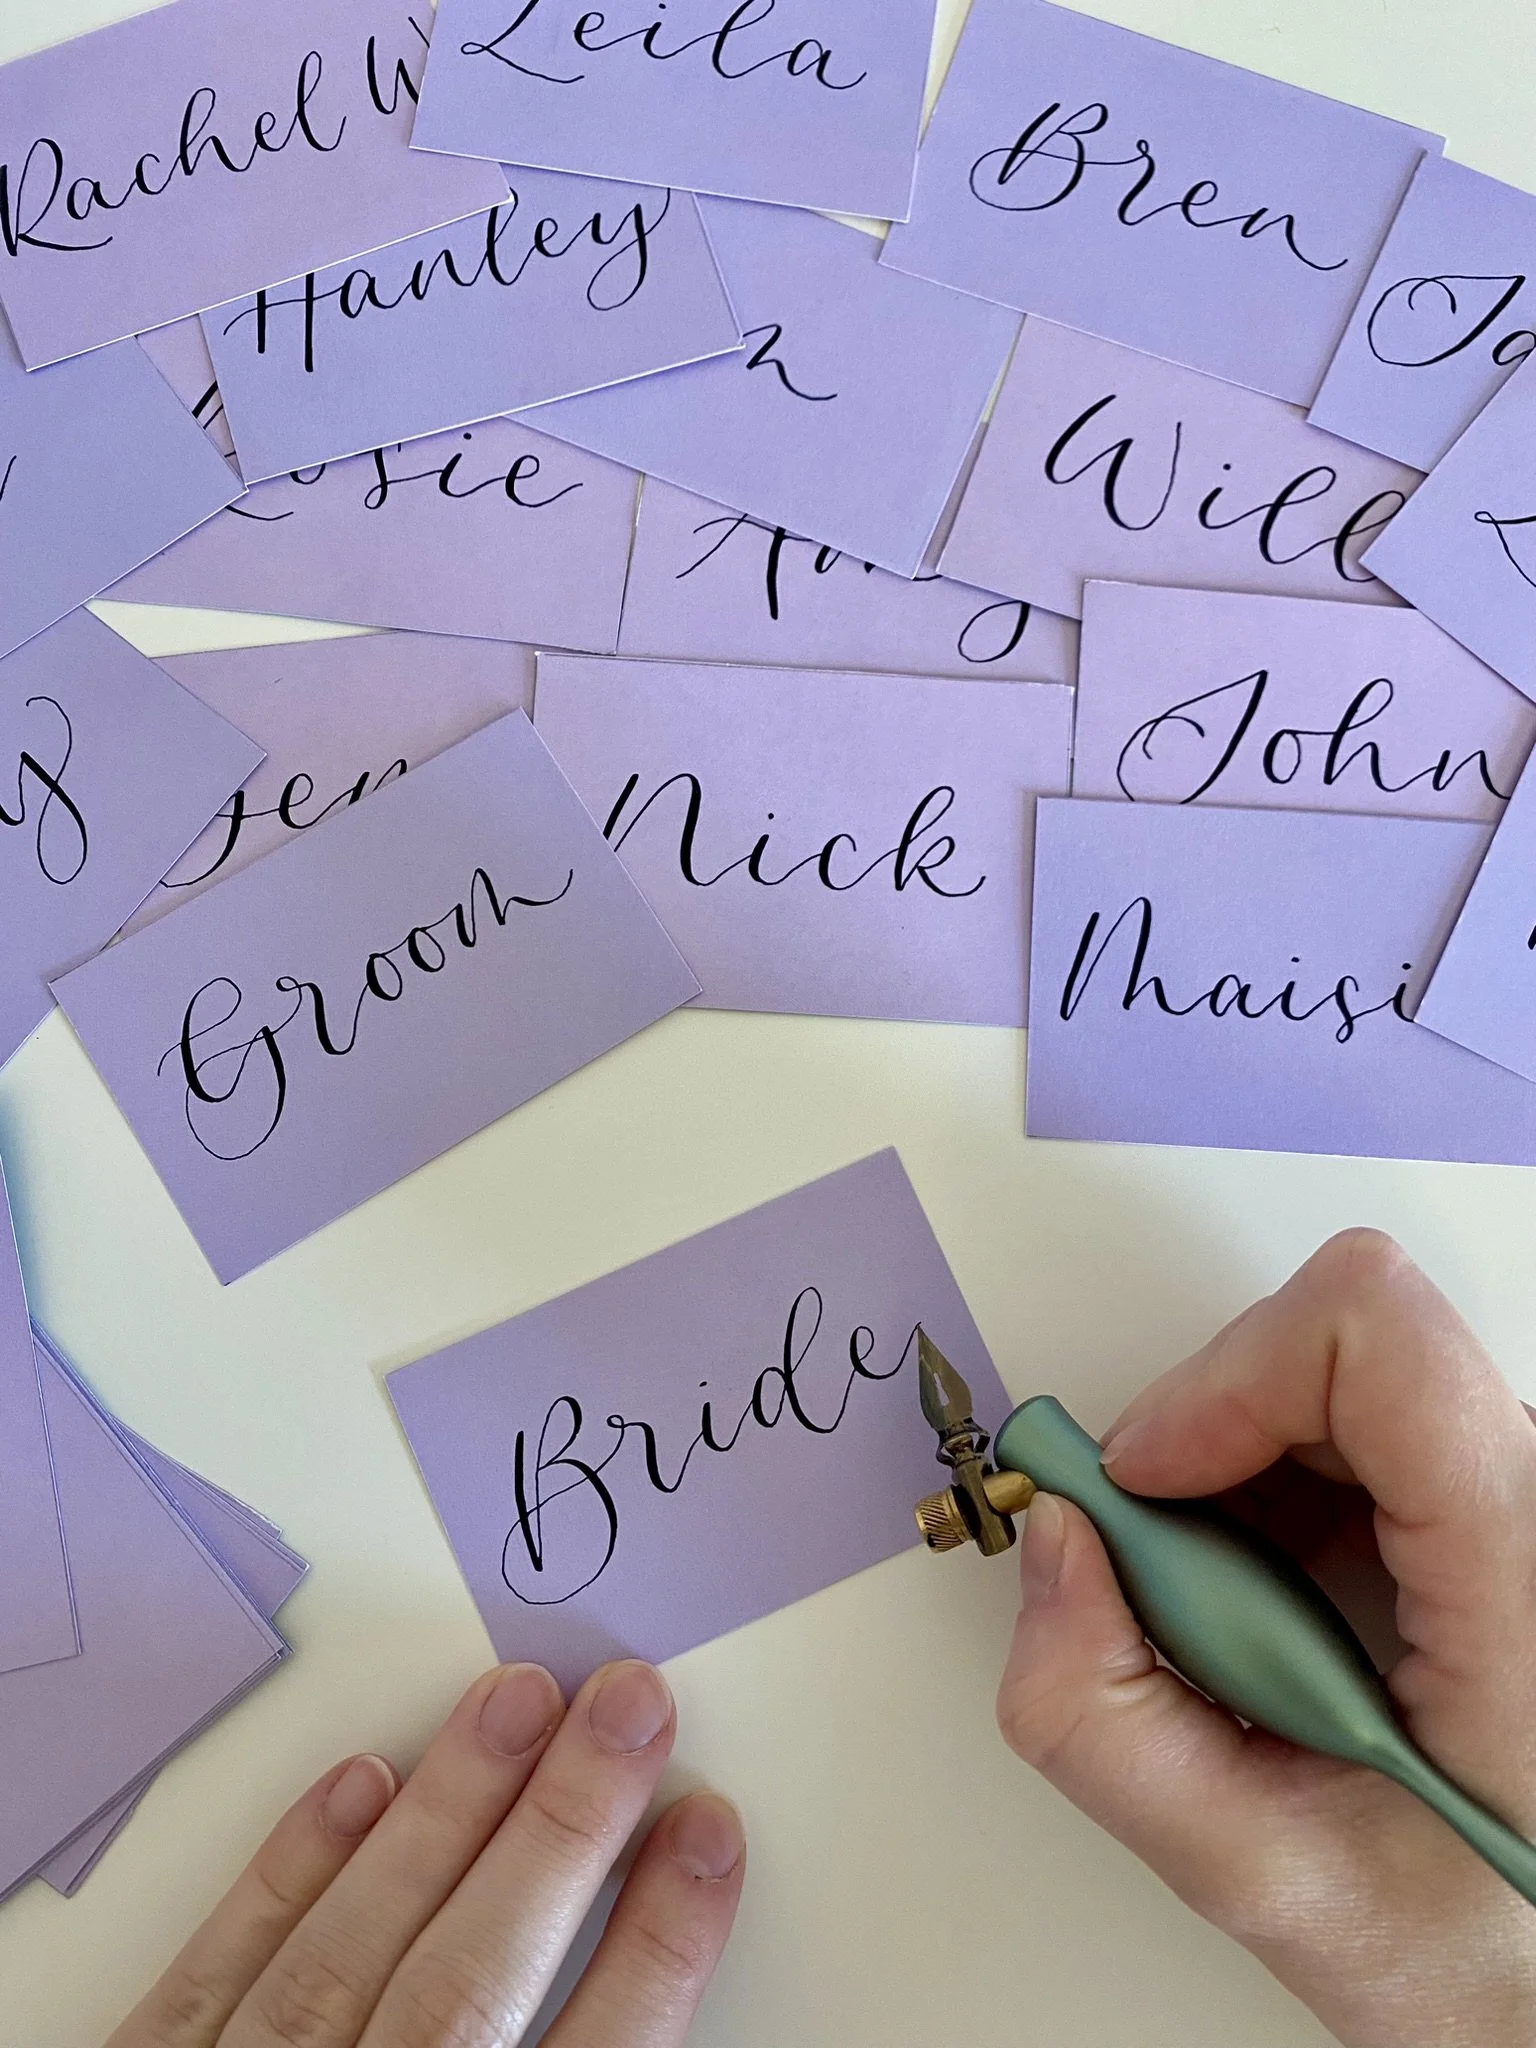 Rachel W
Leila
Bren
Hanley
Will
Rosie
Amy
John
Jen
Nick
Maisi
Groom
Bride